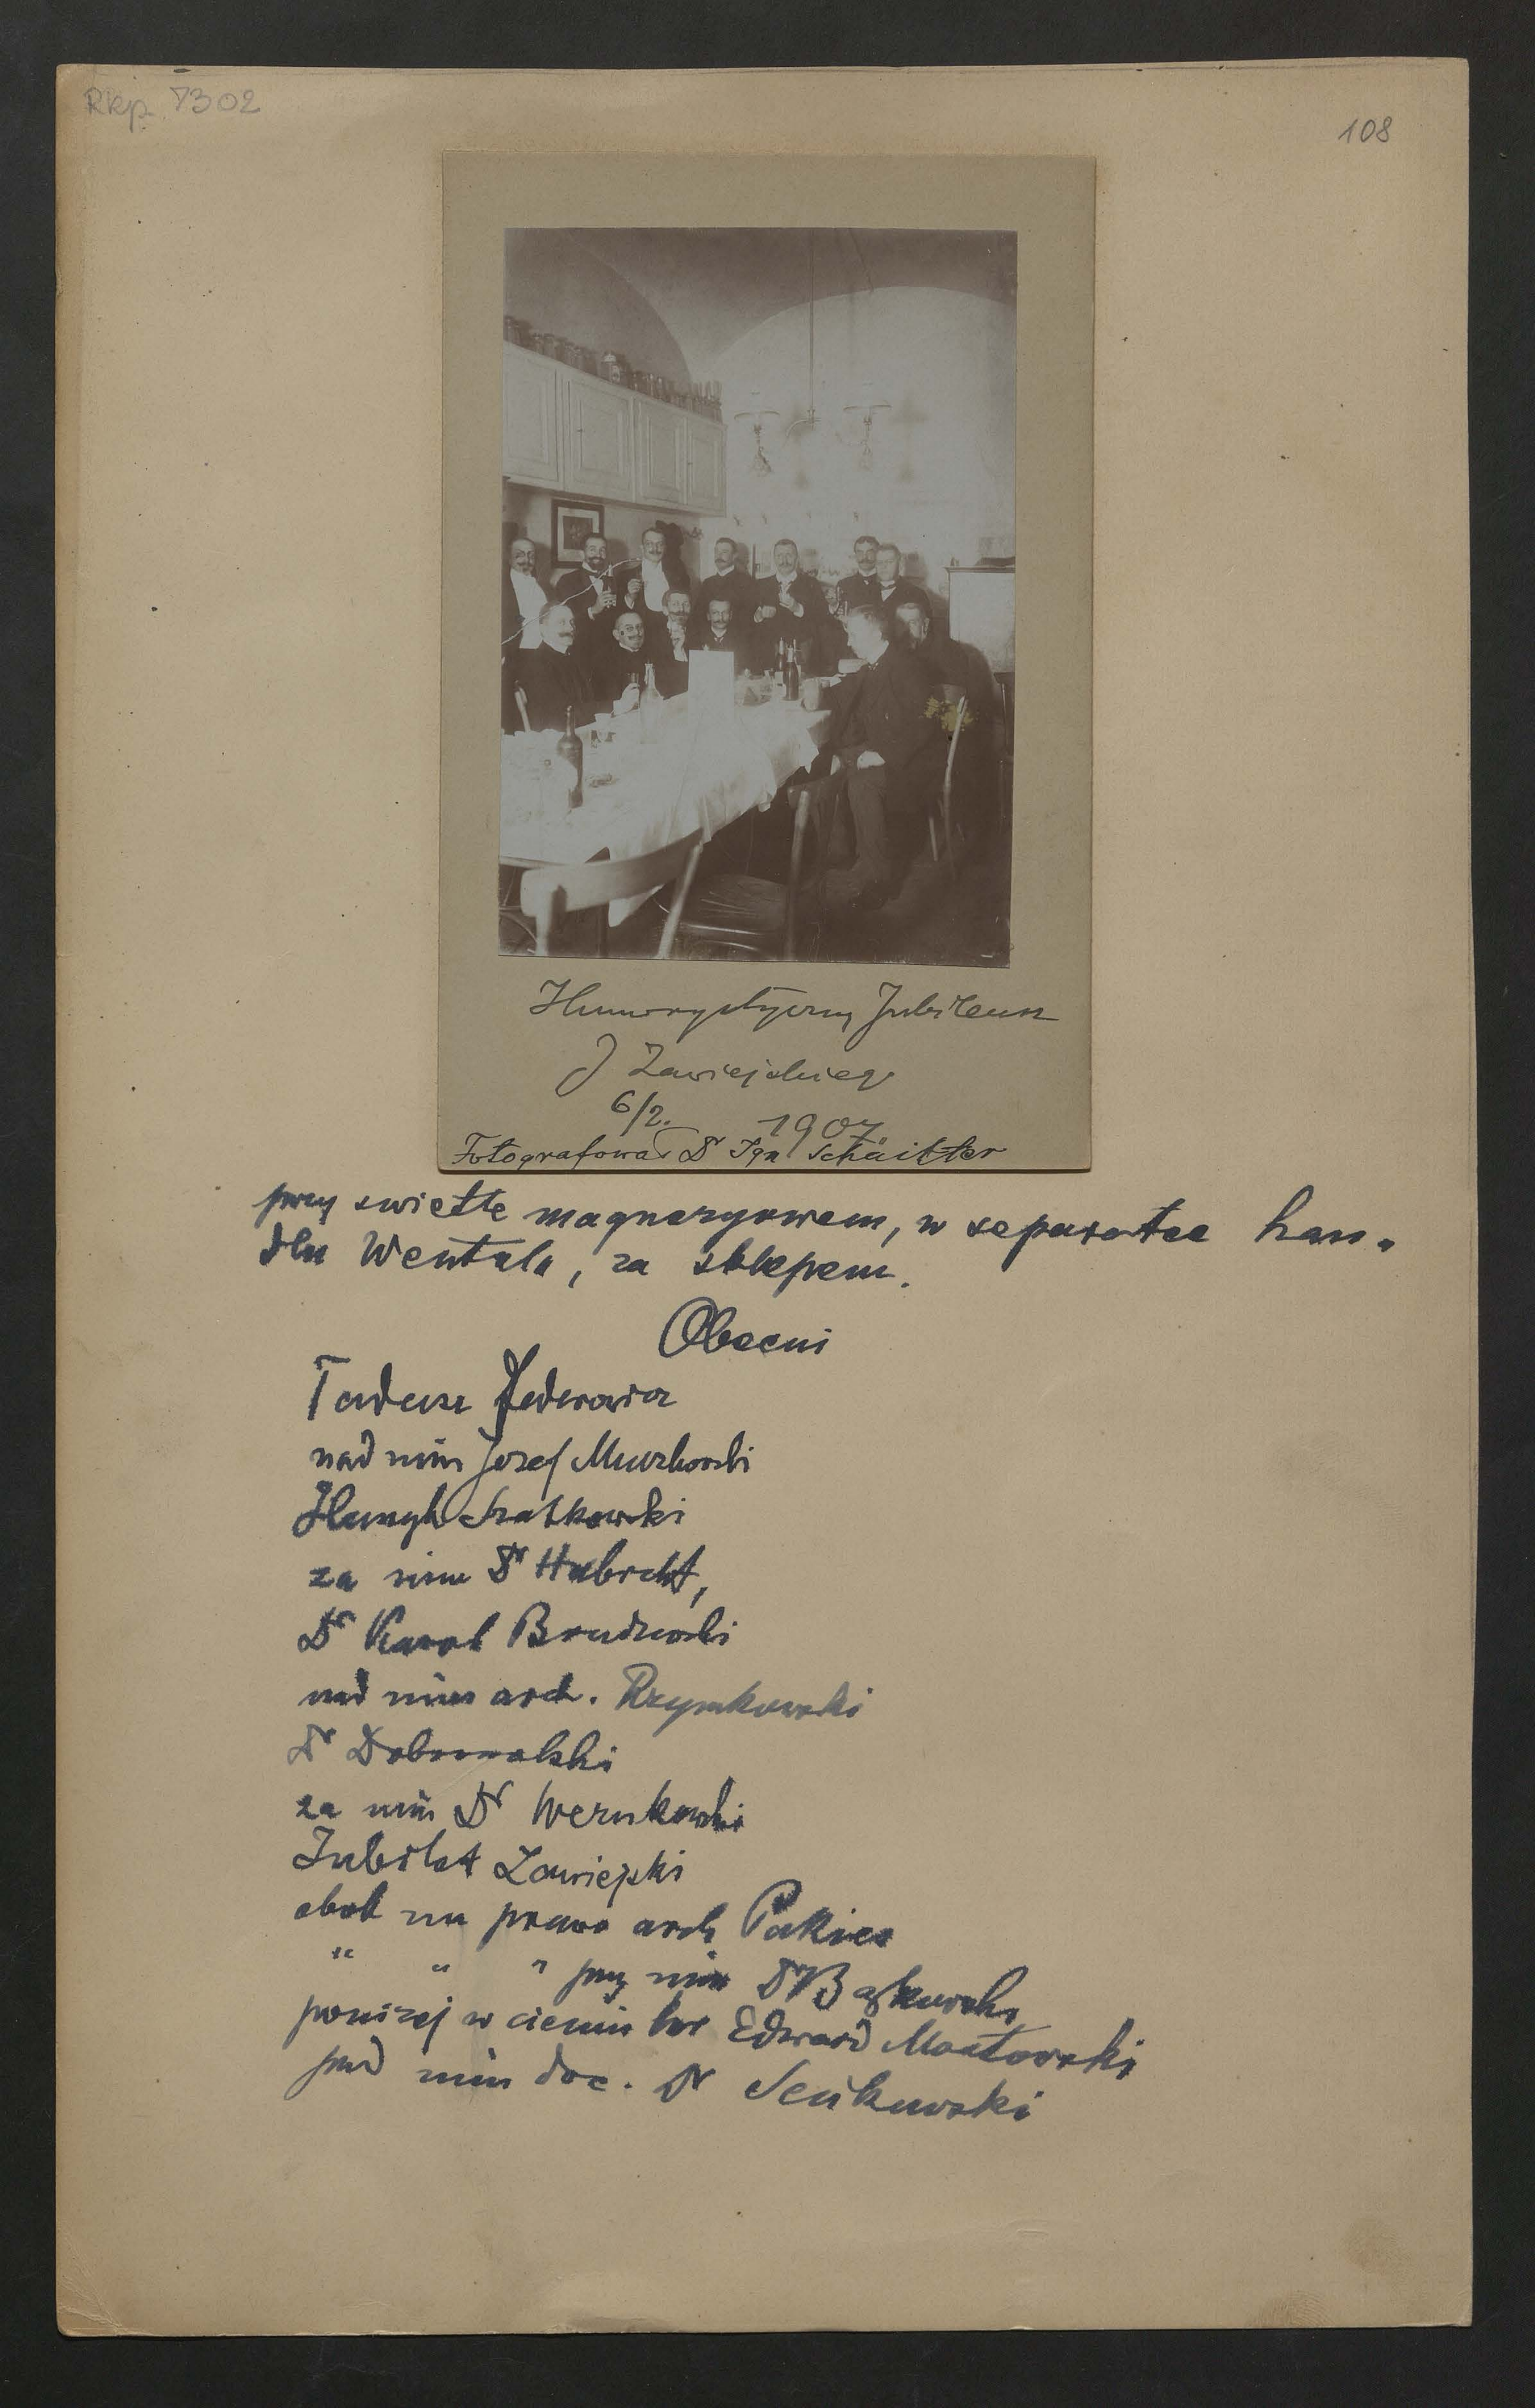 Rkp. 7302
108
Humorystyczny Jubileusz
J Zawiejskiego
6/2. 1907.
Fotografował Dr Ign Schäitter
przy swietle magnezyowem, w separatce han-
dlu Wentzla, za sklepem.
Obecni
Tadeusz
nad nim Jozef Muczkowski
Henryk Szatkowski
za nim Dr Hubrcht,
Dr Karol Brudzewski
nad nim arch. Rzymkowski
Dr Dobrowolski
za nim Dr Wernkowski
Jubilat Zawiejski
obok na prawo arch Pakies
" " " przy nim Dr Bąkowski
ponizej w cieniu Edward
pod nim doc. Dr Seńkowski